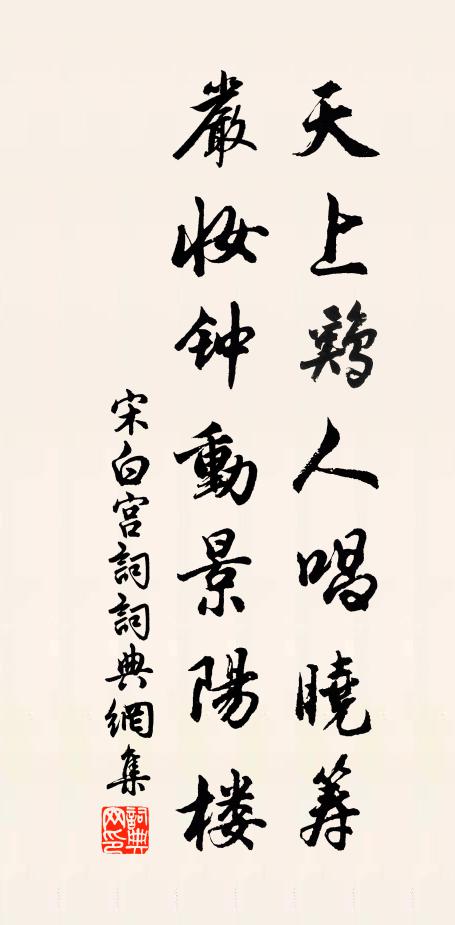 天上鷄人唱曉筹
嚴妆钟動景陽楼
宋白宫詞詞典網集
詞典網印